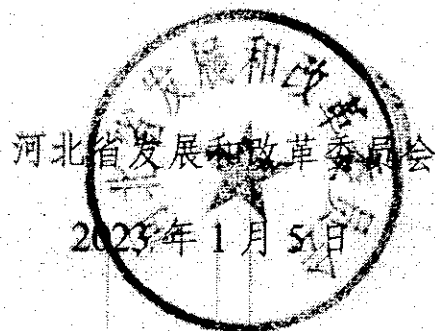 河北省发展和改革委员会
2023年1月5日